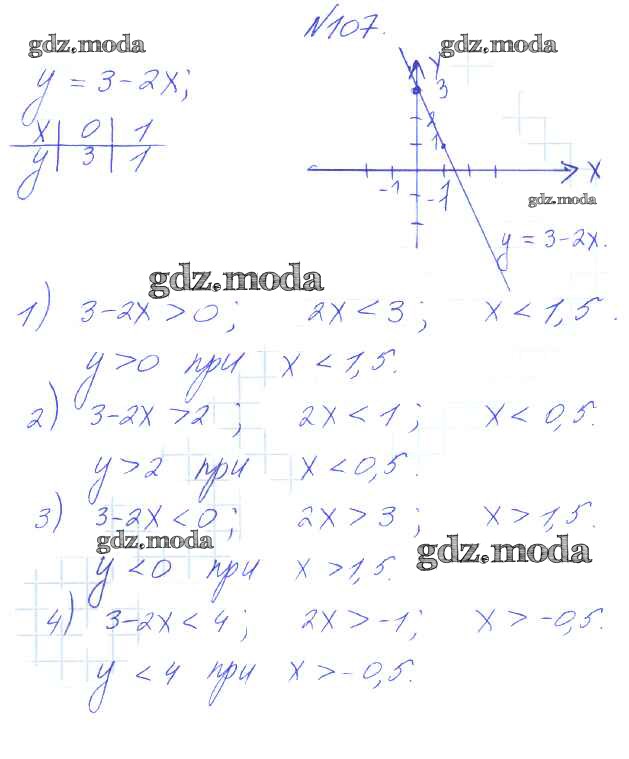 №107.
gdz.moda gdz.moda
y = 3-2x;
x 0 1
y 3 1
y
3
2
1
-1 1 x
-1
gdz.moda
y = 3-2x.
gdz.moda
1) 3-2x>0; 2x<3; x<1,5.
y>0 при x<1,5.
2) 3-2x>2; 2x<1; x<0,5.
y>2 при x<0,5.
3) 3-2x<0; 2x>3; x>1,5.
gdz.moda gdz.moda
y<0 при x>1,5.
4) 3-2x<4; 2x>-1; x>-0,5.
y<4 при x>-0,5.